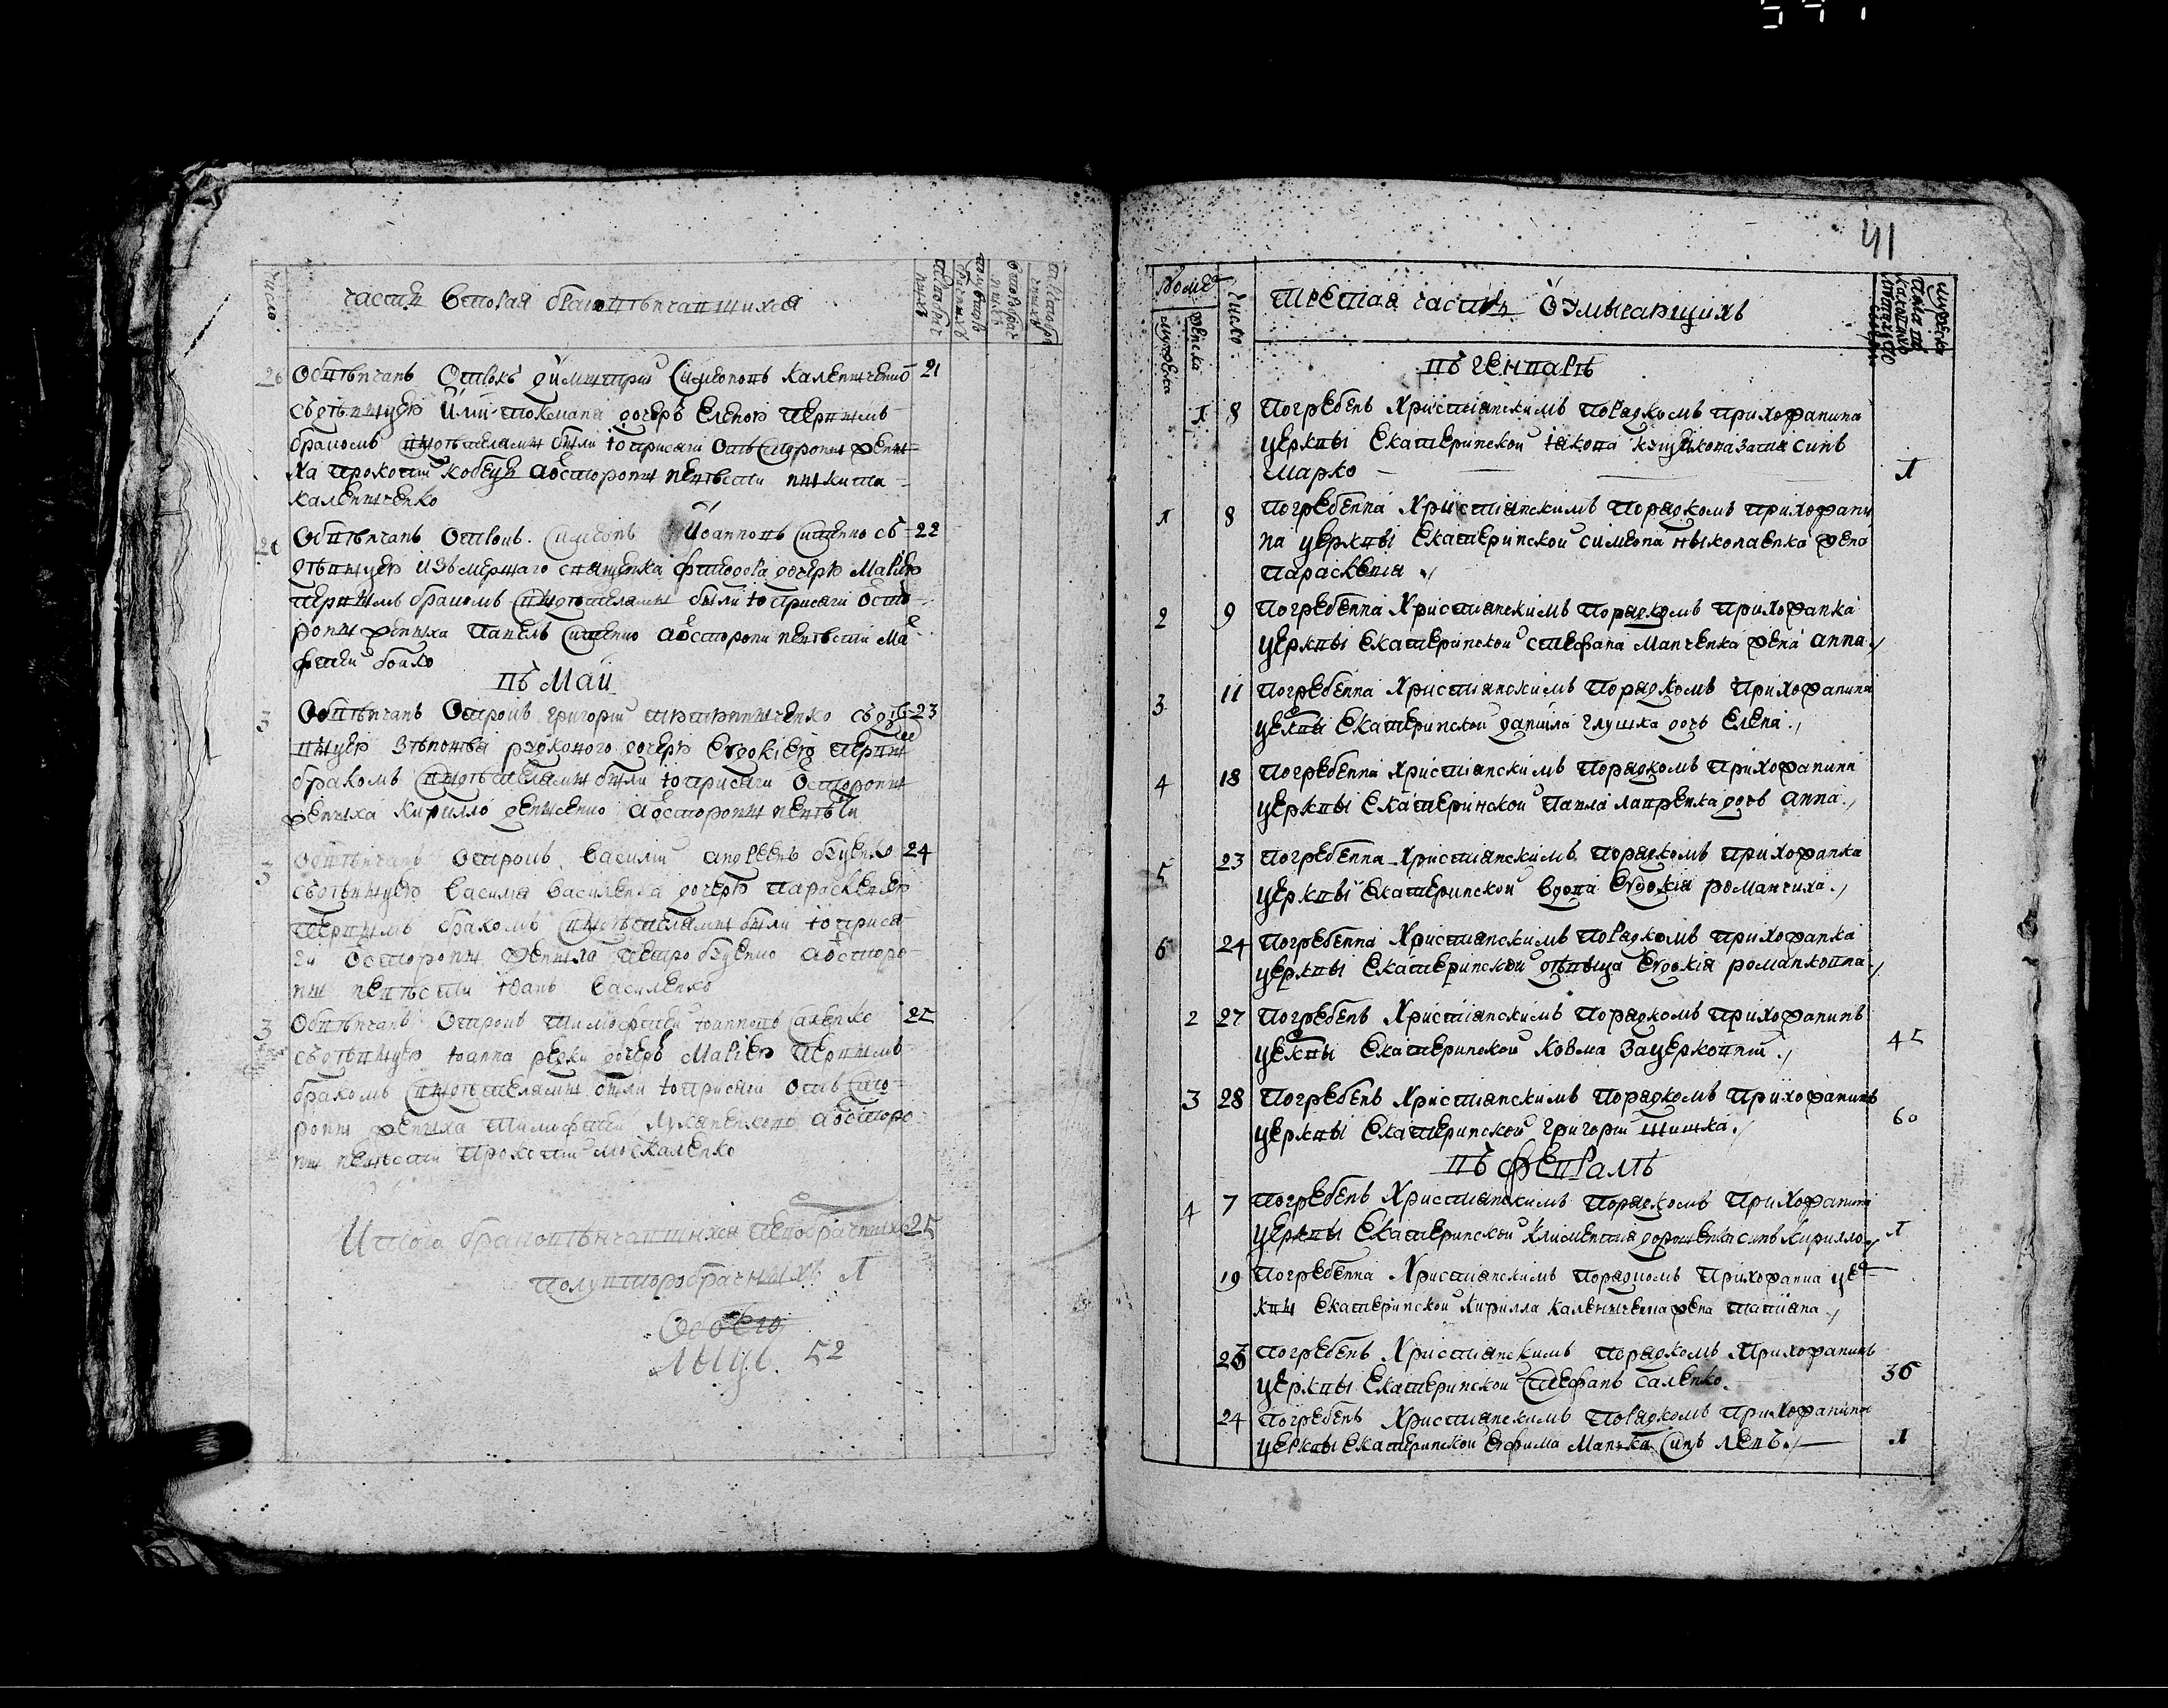 41
число
часть вторая бракъ вѣнчавшихся
26
Обвѣнчанъ Отрокъ Димитрій Симеоновъ Калениченко
21
съ дѣвицею дочерь Еленою первымъ
бракомъ свидѣтелями были и присяги отъ стороны жени-
ха Прокопій Кобецъ а отъ стороны невѣсти Никита
Калениченко
Обвѣнчанъ Отрокъ Симеонъ Иоанновъ Сищенко съ
22
дѣвицею изъ священика дочерю Маріею
первымъ бракомъ свидѣтелями были и присяги отъ сто-
роны жениха Павелъ Сищенко а отъ сторони невѣстии Ма
фтеи Бойко
въ Маи
3
Обвѣнчанъ Отрокъ Григорій съ дѣ-
23
вицею дочерю Евдокіею первы
бракомъ свидѣтелями были и присяги отъ стороны
жениха Кирилло Денисенко а отъ стороны невѣсти
3
Обвѣнчанъ Отрокъ Василій Андреевъ Буценко
24
съ дѣвицею Василия Василенка дочерю Параскевею
первымъ бракомъ свидѣтелями были и прися-
ги отъ стороны жениха Петро Буценко а отъ сторо-
ны невѣсти Іванъ Василенко
3
Обвѣнчанъ Отрокъ Тимофтей Іоанновъ Саленко
25
съ дѣвицею Іоанна Редки дочерь Маріею первымъ
бракомъ свидѣтелями были и присяги отъ сто-
роны жениха Тимофтей а отъ сторо
ны невѣсти Прокопій Москаленко
Итого браковѣнчавшихся первобрачнихъ 25
полувторобрачныхъ 1
Обоего
лыць 52
Номеръ
мужеска
женска
число
третая часть О умирающихъ
въ генварѣ
1
8
Погребенъ Христіянскимъ порядкомъ прихожанина
церкви Екатеринской Іакова зятя синъ
Марко
1
1
8
Погребенна Християнскимъ порядкомъ прихожани
на церкви Екатеринской Симеона Николаенка жена
Параскевия
2
9
Погребенна Християнскимъ порядкомъ прихожанка
церкви Екатеринской Стефана Манченка жена Анна
3
11
Погребенна Християнскимъ порядкомъ прихожанина
церкви Екатеринской Даниила Глушка дочь Елена
4
18
Погребенна Християнскимъ порядкомъ прихожанина
церкви Екатеринской Павла Лавренка дочь Анна
5
23
Погребенна Християнскимъ порядкомъ прихожанка
церкви Екатеринской вдова Евдокія Романчиха
6
24
Погребенна Християнскимъ порядкомъ прихожанка
церкви Екатеринской дѣвица Евдокія Романковна
2
27
Погребенъ Християнскимъ порядкомъ прихожанинъ
церкви Екатеринской Козма Зацерковній
45
3
28
Погребенъ Християнскимъ порядкомъ прихожанинъ
церкви Екатеринской Григорій Шишка
60
въ февралѣ
4
7
Погребенъ Християнскимъ порядкомъ прихожанина
церкви Екатеринской Климентия Дорошенка синъ Кирилло
1
19
Погребенна Християнскимъ порядкомъ прихожанка цер
кви Екатеринской Кирилла Калениченка жена Татияна
23
Погребенъ Християнскимъ порядкомъ прихожанинъ
церкви Екатеринской Стефанъ Саленко
36
24
Погребенъ Християнскимъ порядкомъ прихожанина
церкви Екатеринской Ефима Манька синъ Левъ
1